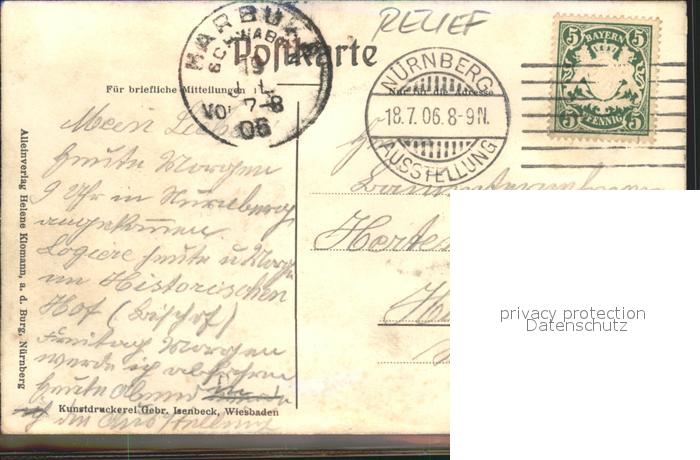 RELIEF
HARBURG
SCHWABEN
19
VOR 7-8
06
Postkarte
Für briefliche Mitteilungen
Nur für die Adresse
NÜRNBERG
18.7.06.8-9N.
AUSSTELLUNG
5 BAYERN 5
5 PFENNIG 5
Mein
Heute Morgen
9 Uhr in Nürnberg
angekommen.
Logiere heute u Morgen
im Historischen
Hof (Bischof)
Freitag Morgen
werde ich abfahren
heute Abend
ich die Ausstellung
Alleinverlag Helene Klomann, a. d. Burg, Nürnberg
Kunstdruckerei Gebr. Isenbeck, Wiesbaden
privacy protection
Datenschutz